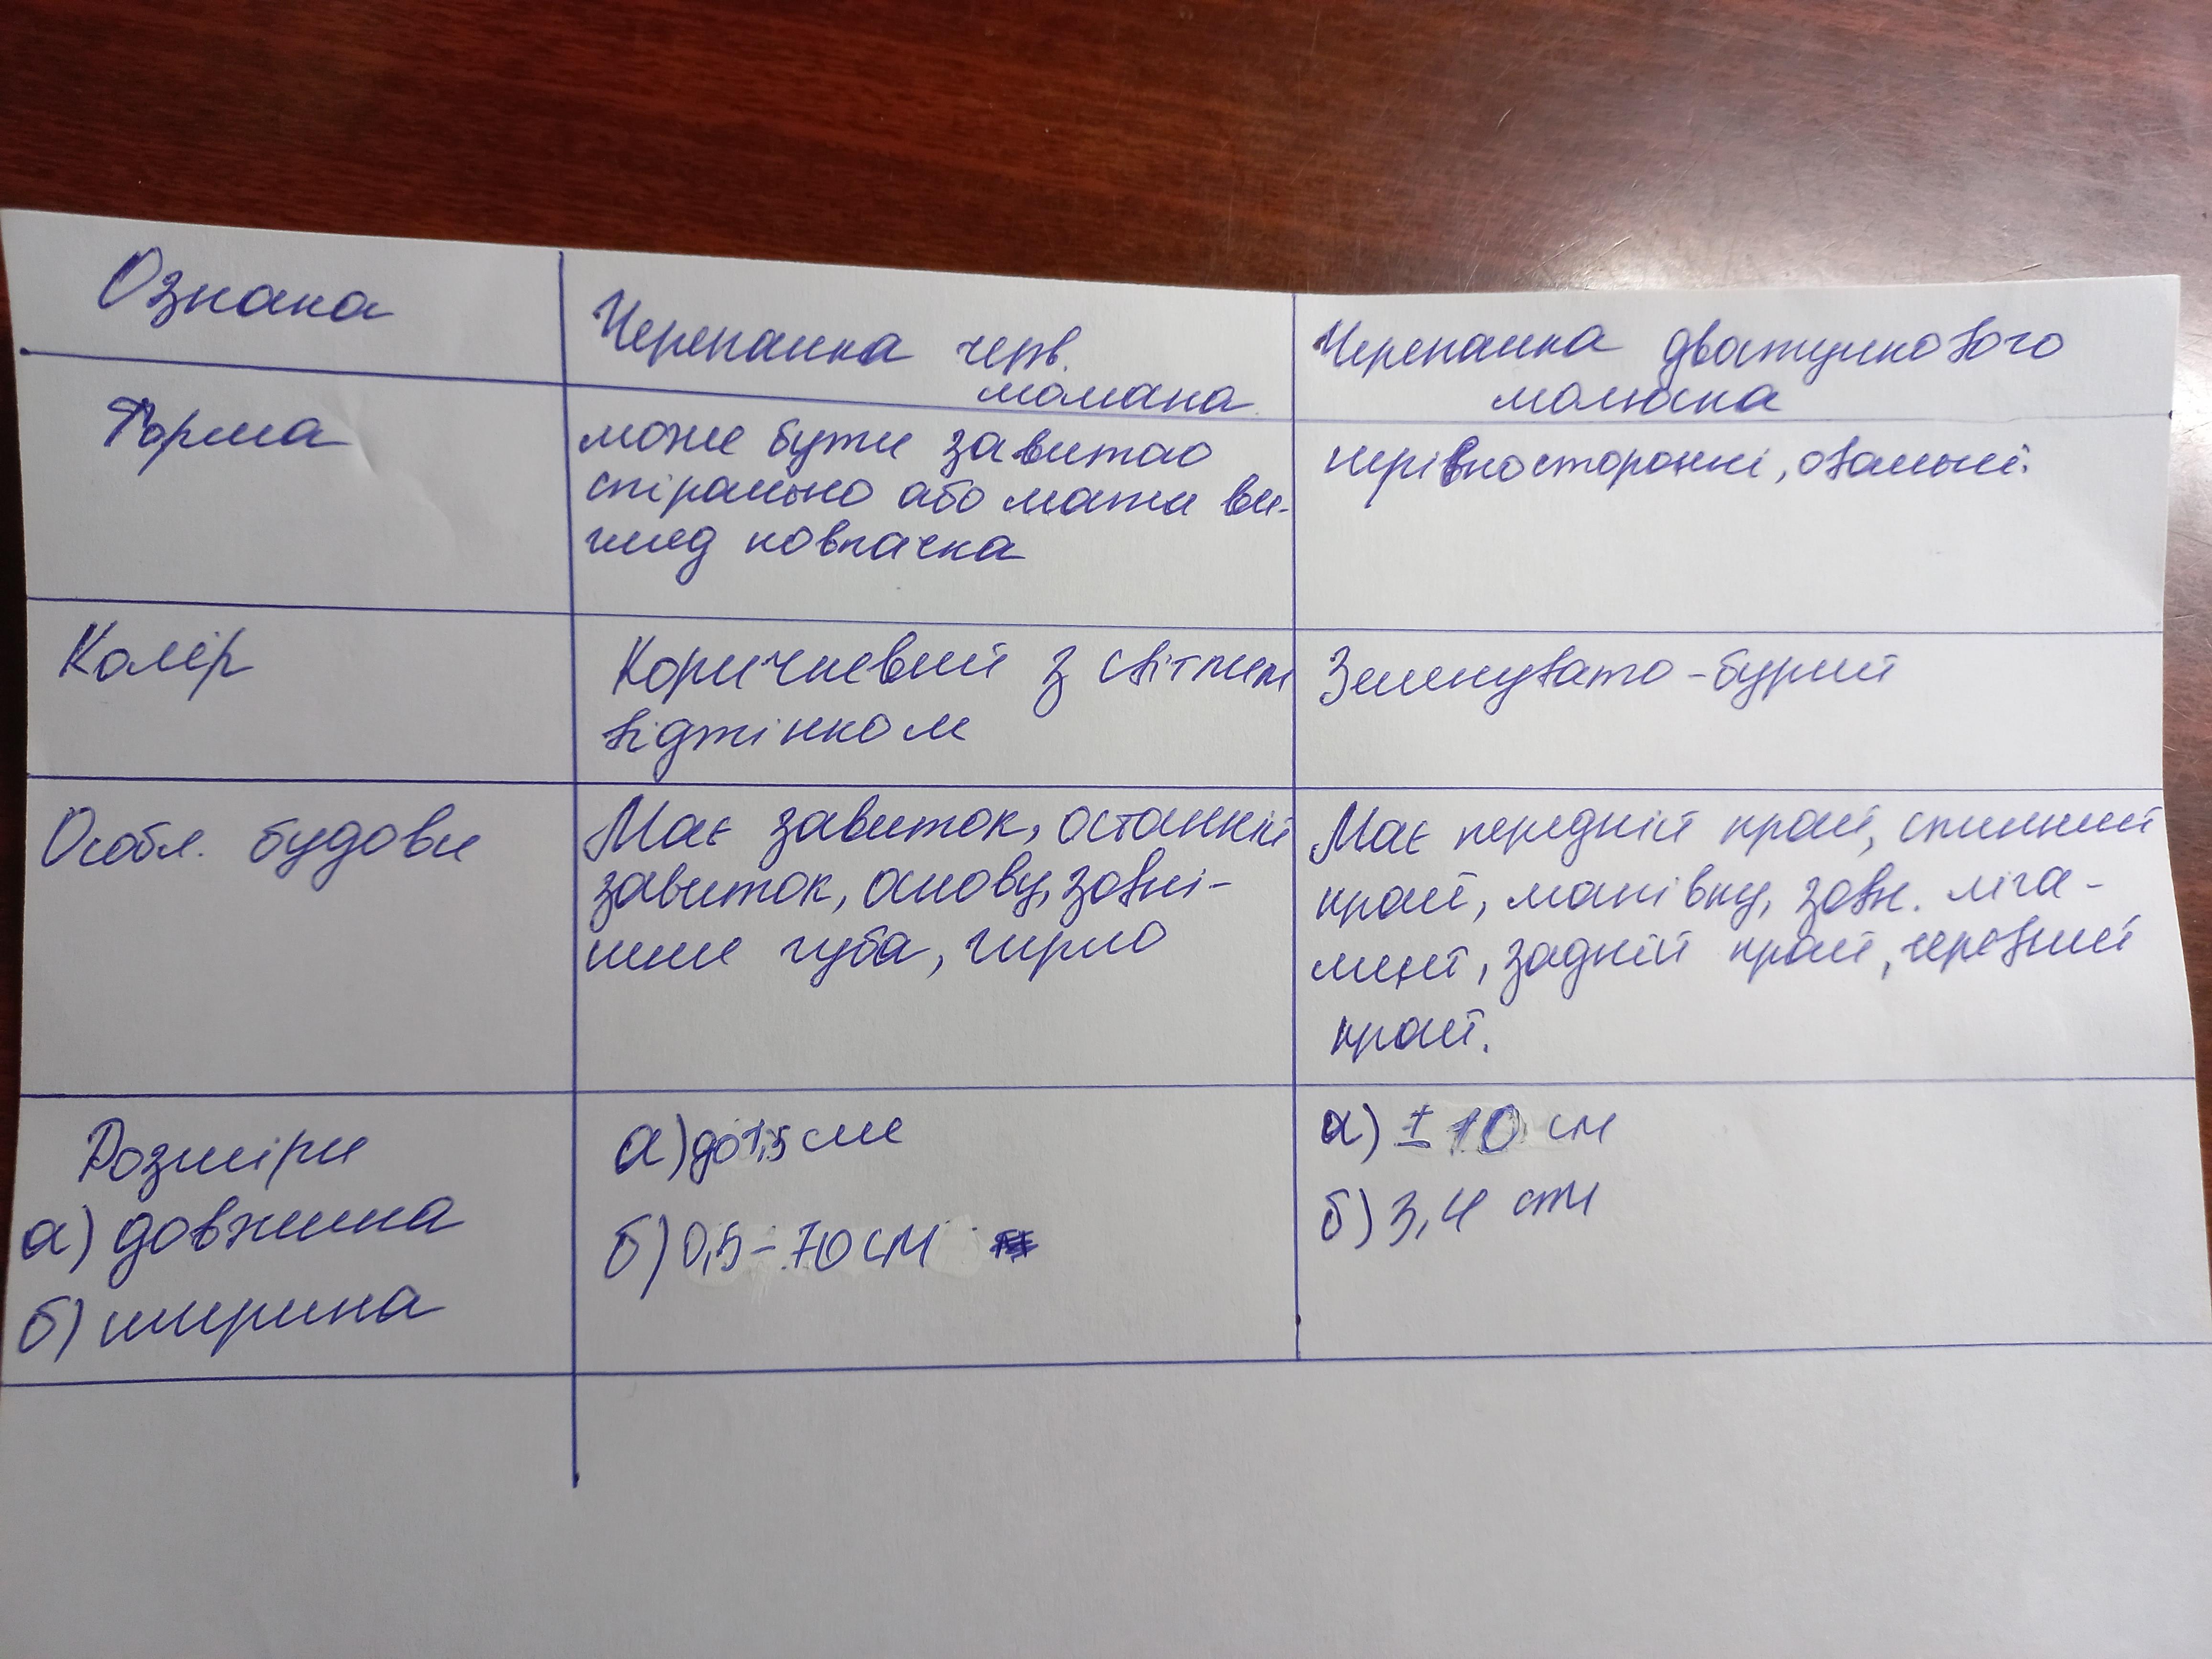 Ознака
Черепашка черв.
молюска
Черепашка двостулкового
молюска
Форма
може бути завитою
спірально або мати ви-
гляд ковпачка
нерівносторонні, овальні.
Колір
Коричневий з світлим
відтінком
Зеленувато-бурий
Особл. будови
Має завиток, останній
завиток, основу, зовні-
шня губа, гирло
Має передній край, спинний
край, маківку, зовн. ліга-
мент, задній край, черевний
край.
Розміри
а) довжина
б) ширина
а) до 1,5 см
б) 0,5-70 см
а) ± 10 см
б) 3,4 см